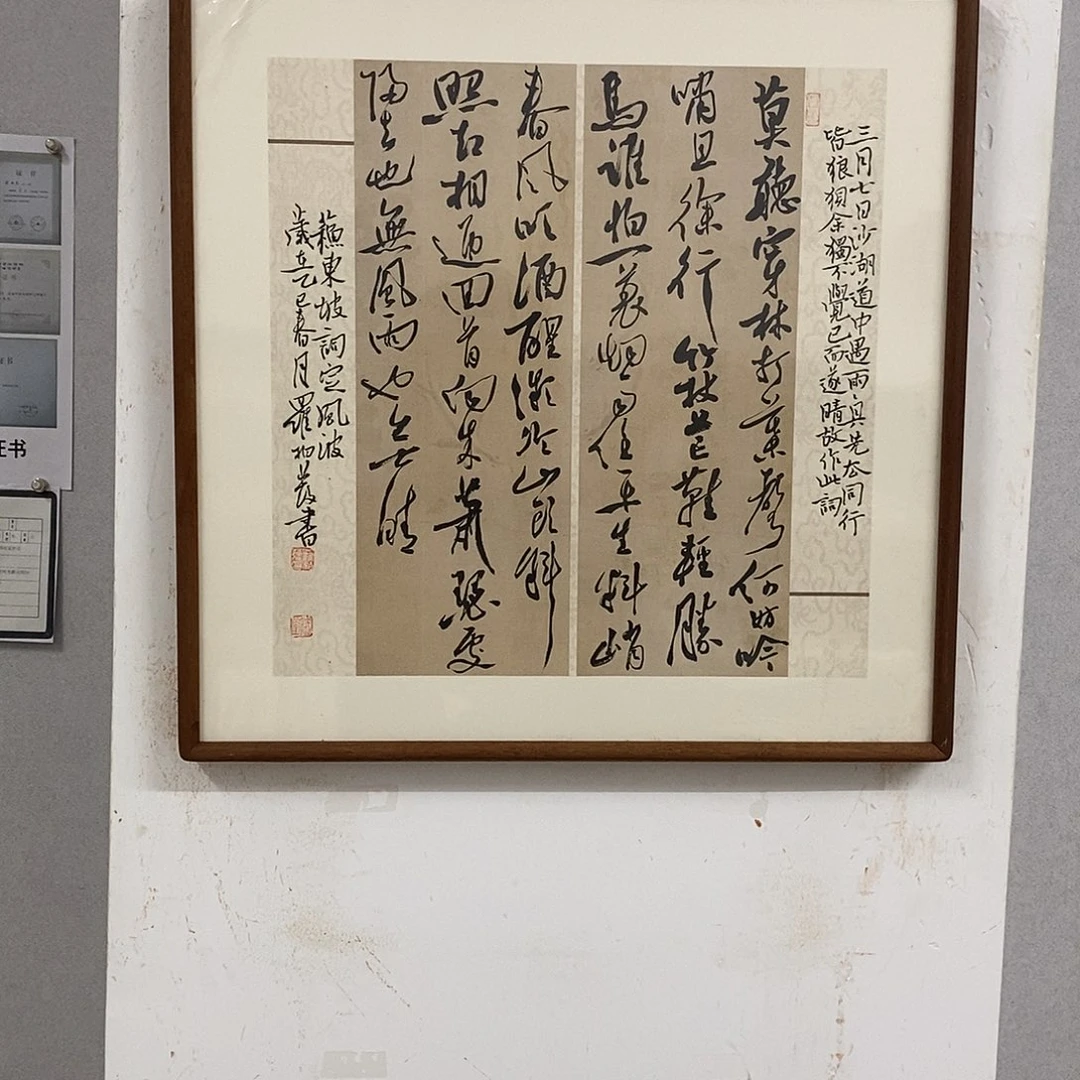 三月七日沙湖道中遇雨〻具先去同行
皆狼狽余獨不覺已而遂晴故作此詞
莫聽穿林打葉聲何妨吟
嘯且徐行竹杖芒鞋輕勝
馬誰怕一蓑烟雨任平生料峭
春風吹酒醒微冷山頭斜
照却相迎回首向來蕭瑟處
歸去也無風雨也無晴
蘇東坡詞定風波
歲在乙巳春月羅書
证书